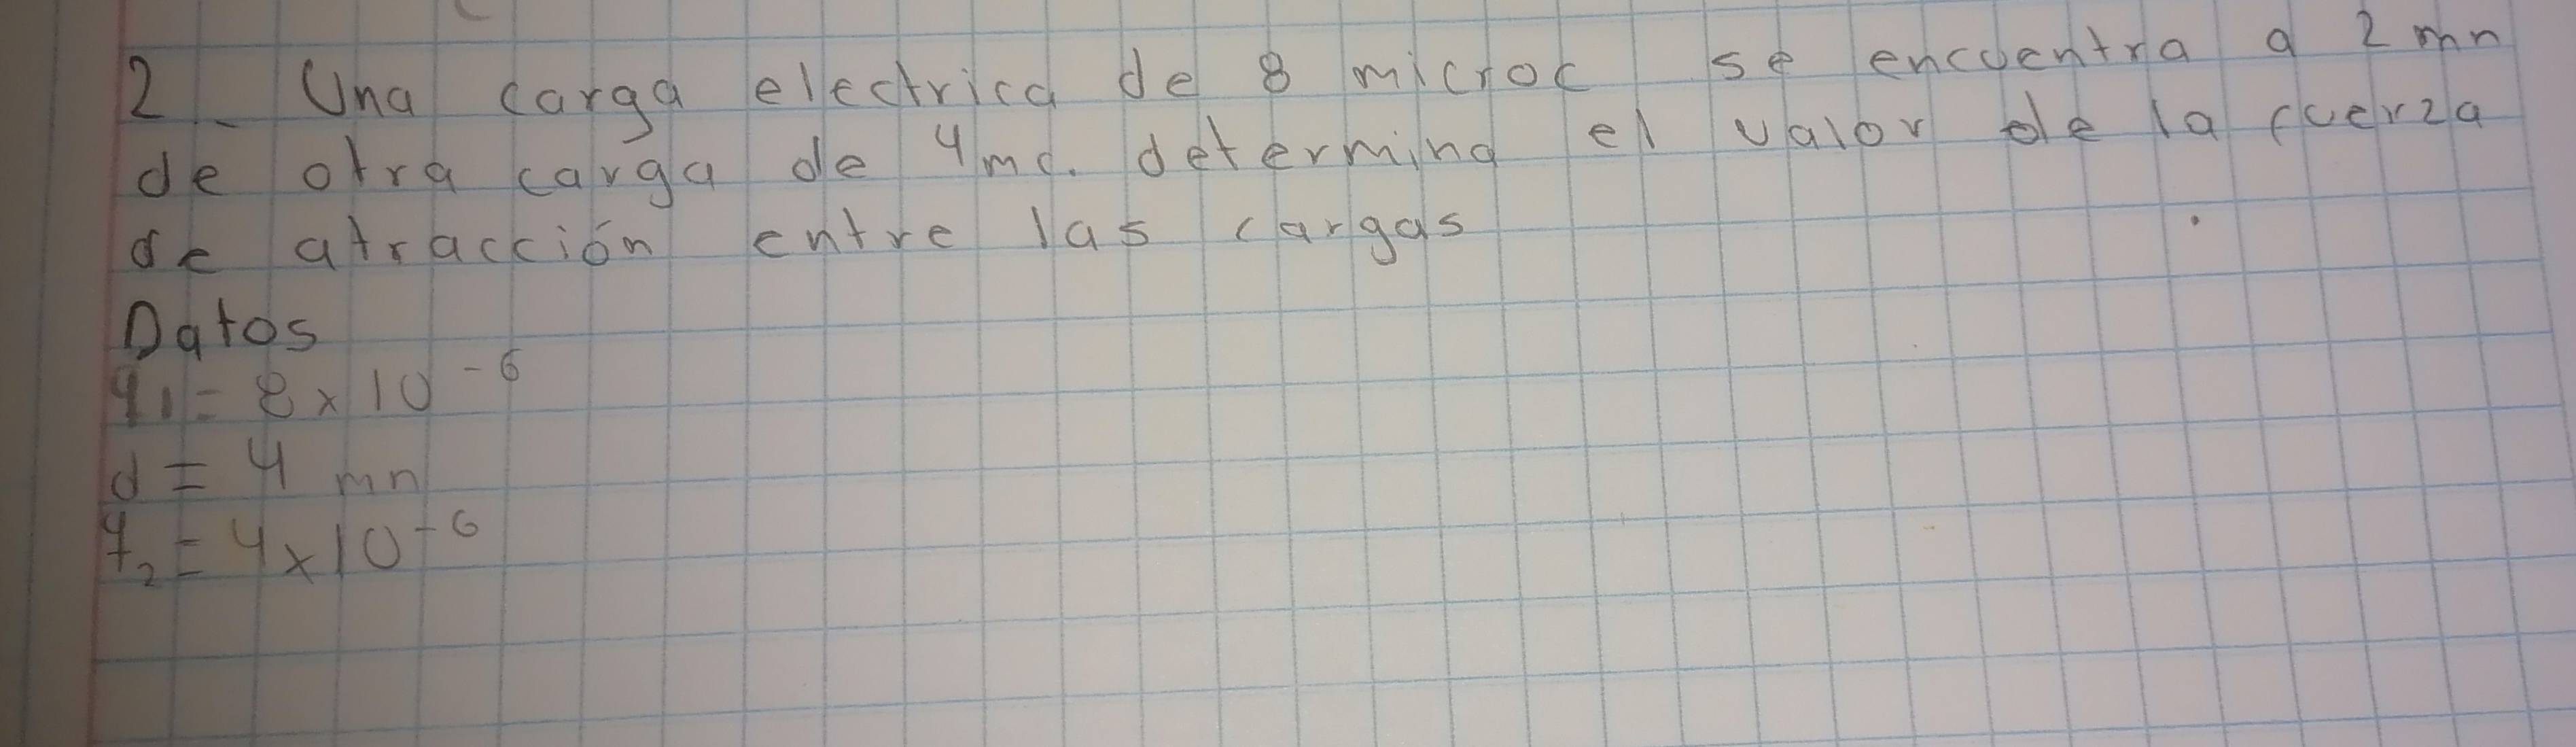 2_ Una carga electrica de 8 microc se encuentra a 2 mn
de otra carga de 4mc. determina el valor de la fuerza
de atracción entre las cargas
Datos
q1 = 8 x 10 -6
d = 4 mn
q2 = 4 x 10 -6